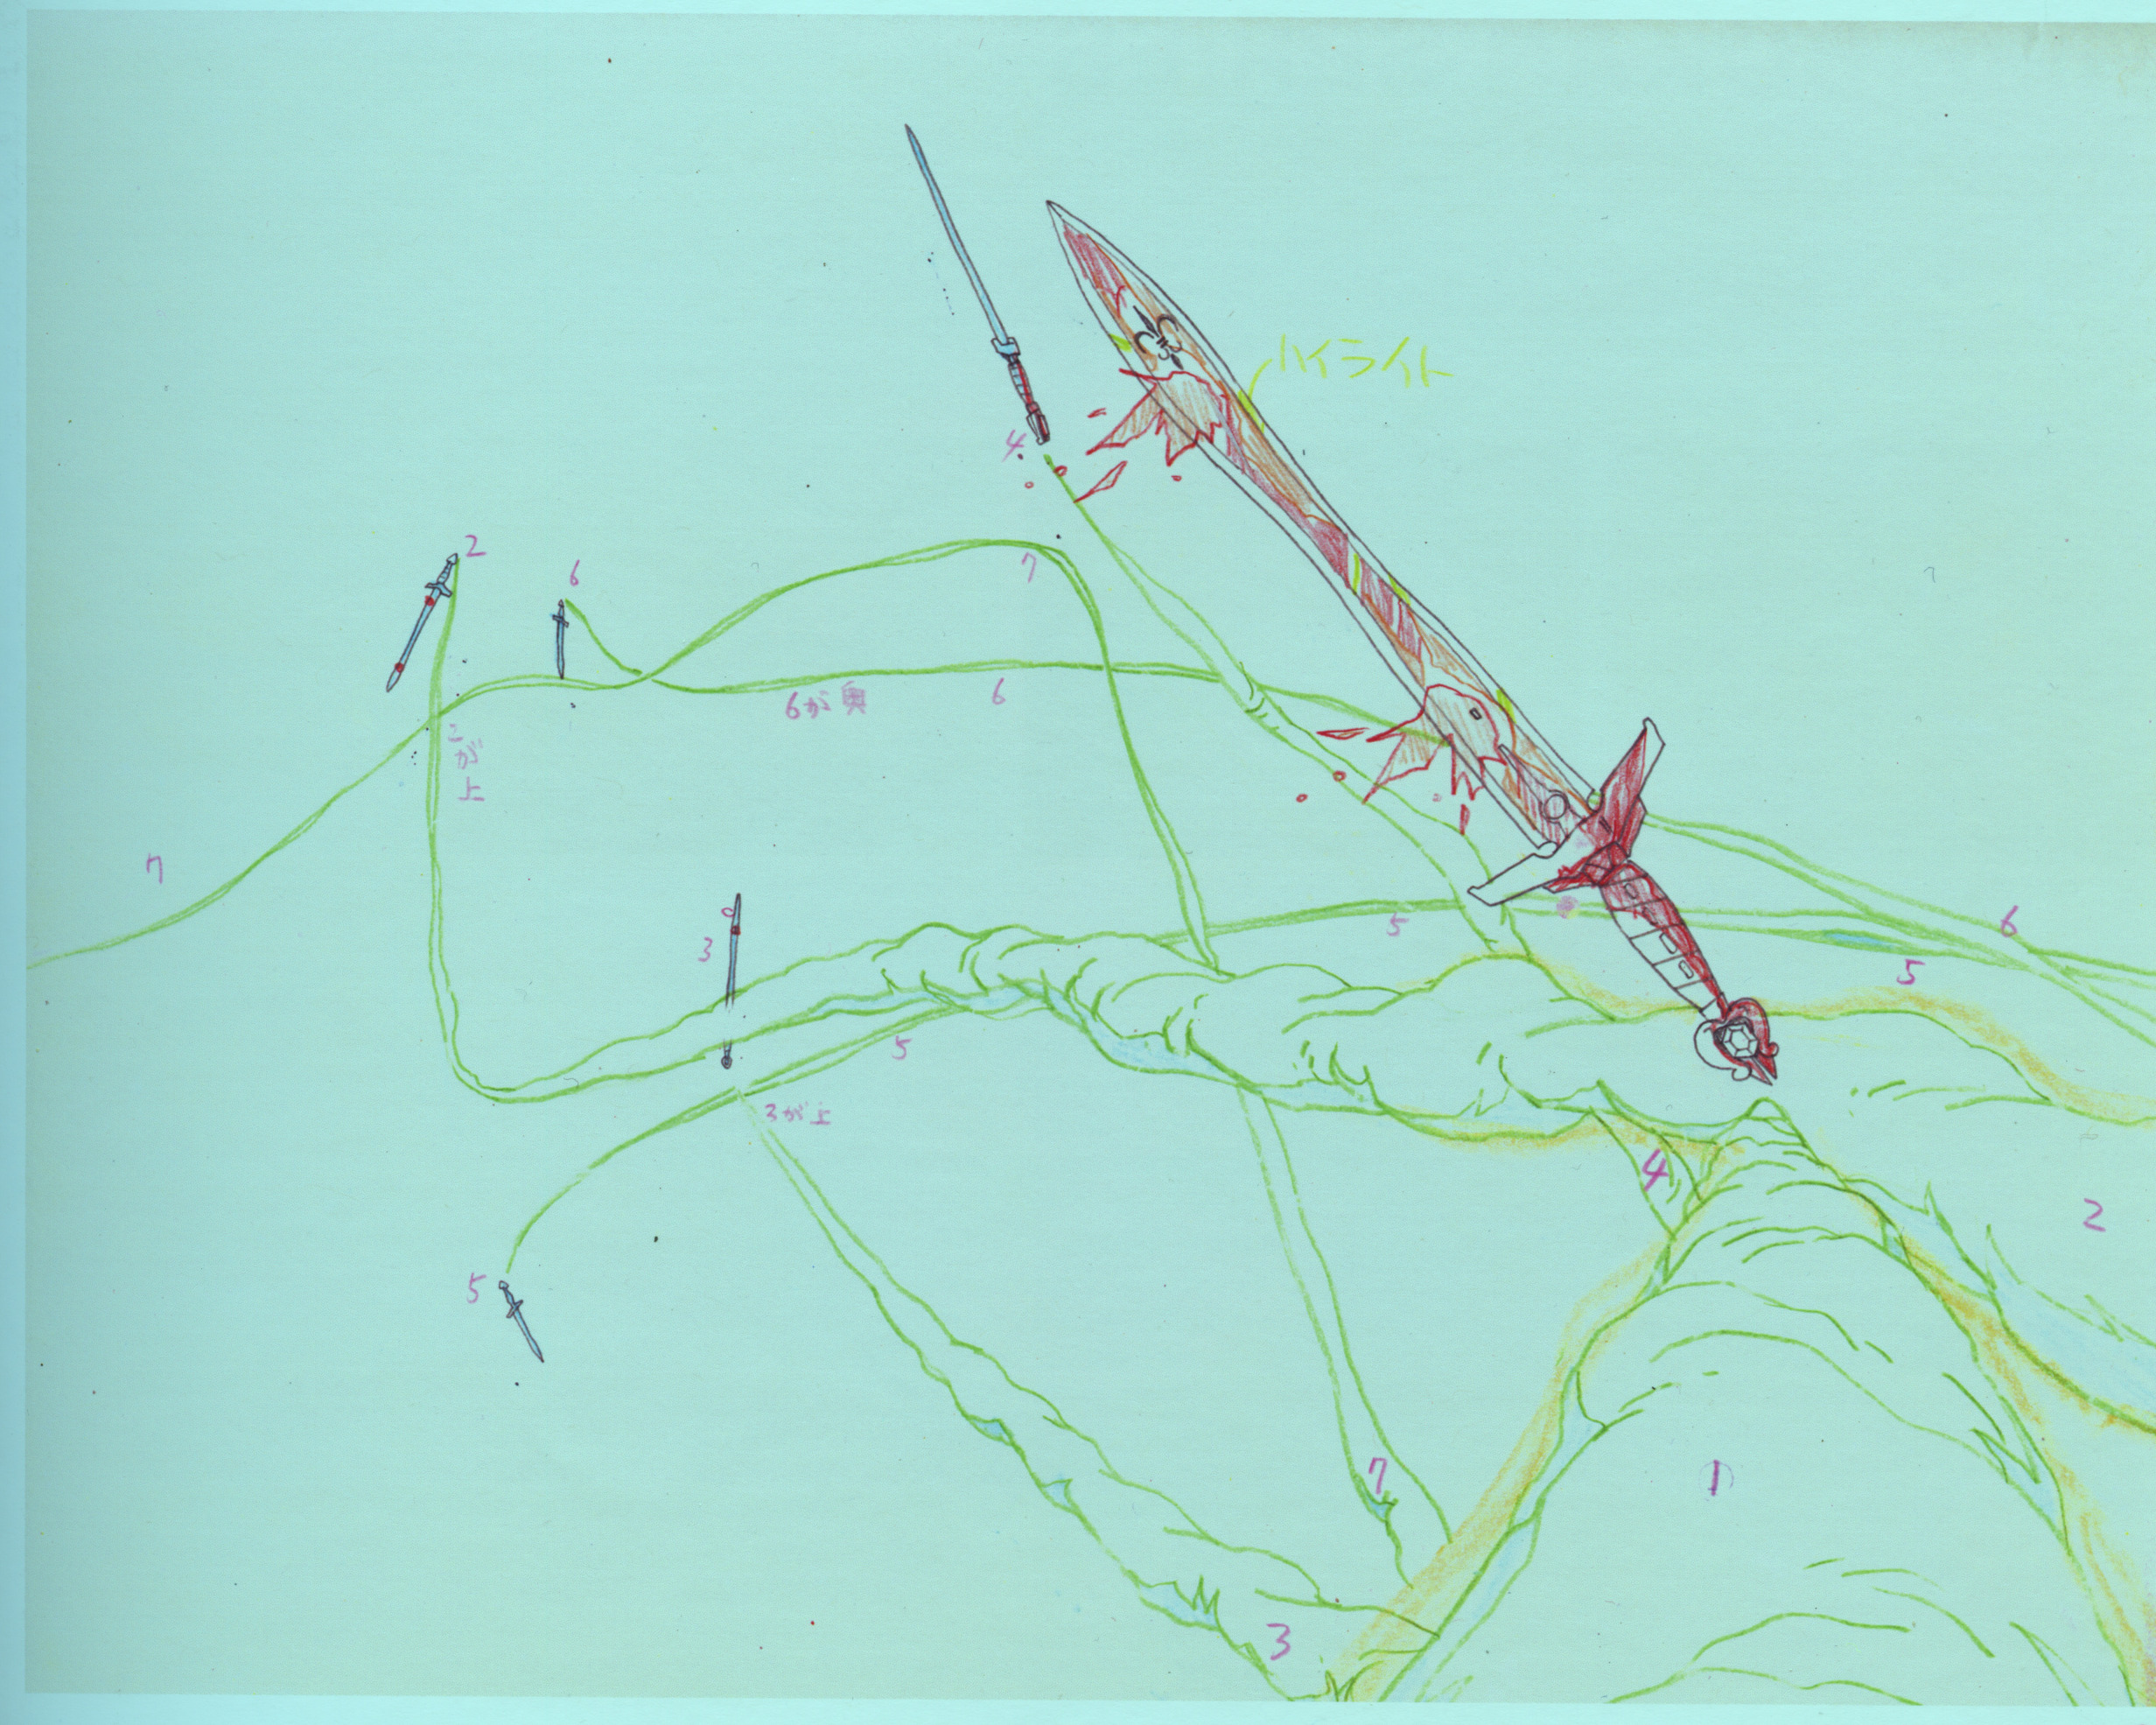 ハイライト
4
2
6
7
6が奥
6
2が上
7
3
5
6
5
5
3が上
4
2
5
7
1
3